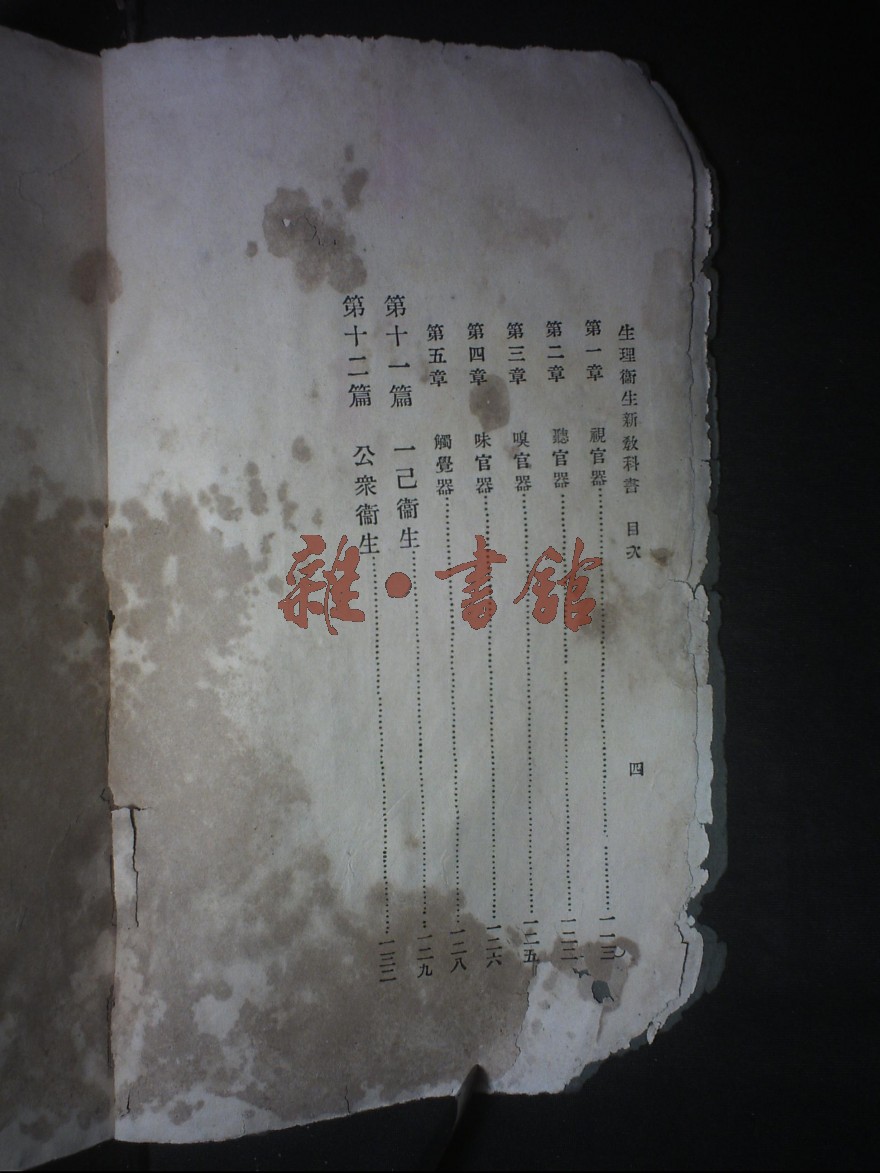 生理衞生新敎科書　目次　四
第一章　視官器……一一三
第二章　聽官器……一二二
第三章　嗅官器……一二五
第四章　味官器……一二六
第五章　觸覺器……一二八
第十一篇　一己衞生……一二九
第十二篇　公衆衞生……一三二
雜·書館